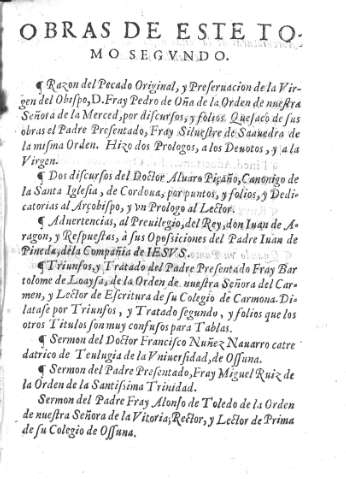 OBRAS DE ESTE TO-
MO SEGVNDO.
¶ Razon del Pecado Original, y Preseruacion de la Vir-
gen del Obispo, D. Fray Pedro de Oña de la Orden de nuestra
Señora de la Merced, por discursos, y folios. Que sacò de sus
obras el Padre Presentado, Fray Siluestre de Saauedra de
la misma Orden. Hizo dos Prologos, a los Deuotos, y a la
Virgen.
¶ Dos discursos del Doctor Aluaro Piçaño, Canonigo de
la Santa Iglesia, de Cordoua, por puntos, y folios, y Dedi-
catorias al Arçobispo, y vn Prologo al Lector.
¶ Aduertencias, al Preuilegio, del Rey, don Iuan de A-
ragon, y Respuestas, à sus Oposiciones del Padre Iuan de
Pineda, de la Compañia de IESVS.
¶ Triunfos, y Tratado del Padre Presentado Fray Bar
tolome de Loaysa, de la Orden de nuestra Señora del Car-
men, y Lector de Escritura de su Colegio de Carmona. Di-
latase por Triunfos, y Tratado segundo, y folios que los
otros Titulos son muy confusos para Tablas.
¶ Sermon del Doctor Francisco Nuñez Nauarro catre
datrico de Teulugia de la Vniuersidad, de Ossuna.
¶ Sermon del Padre Presentado, Fray Miguel Ruiz de
la Orden de la Santissima Trinidad.
Sermon del Padre Fray Alonso de Toledo de la Orden
de nuestra Señora de la Vitoria, Rector, y Lector de Prima
de su Colegio de Ossuna.